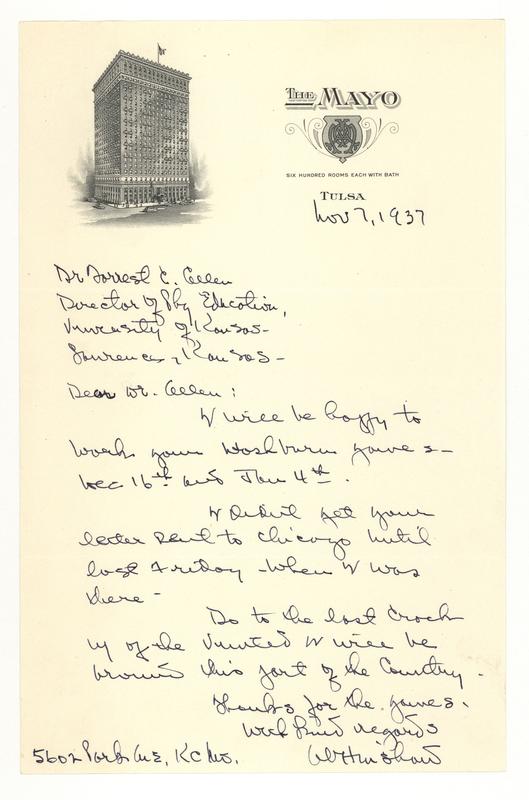 THE MAYO
SIX HUNDRED ROOMS EACH WITH BATH
TULSA
Nov 7, 1937
Dr Forrest C. Allen
Director of Phy Education,
University of Kansas -
Lawrence, Kansas -
Dear Dr. Allen:
I will be happy to
work your Washburn games -
Dec 16th and Jan 4th.
I didn't get your
letter sent to Chicago until
last Friday when I was
there -
Do to the last crack
up of the United I will be
around this part of the Country.
Thanks for the games.
With kind regards
5602 Park Ave, KC Mo.